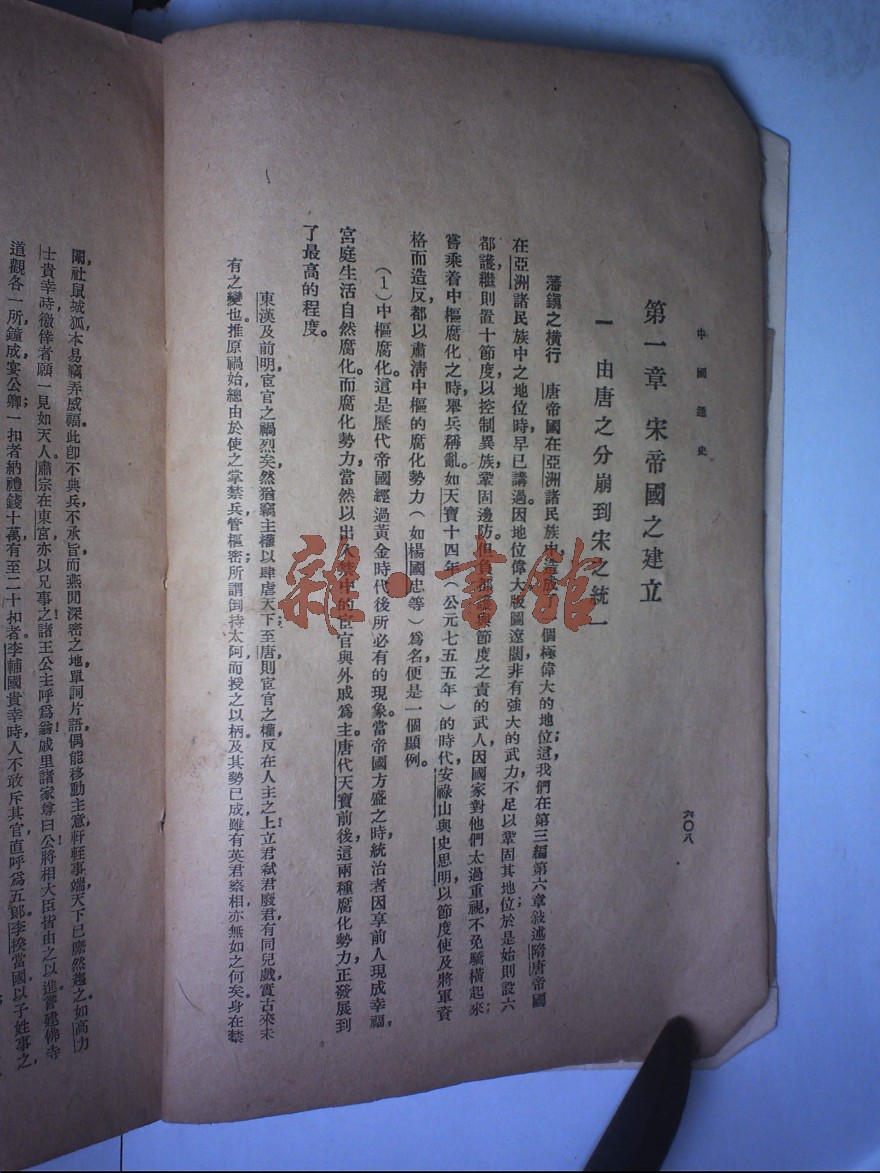 中國通史
六〇八
第一章 宋帝國之建立
一 由唐之分崩到宋之統一
藩鎭之橫行 唐帝國在亞洲諸民族中,造成了一個極偉大的地位;這,我們在第三編第六章敍述隋唐帝國
在亞洲諸民族中之地位時,早已講過。因地位偉大,版圖遼闊,非有強大的武力,不足以鞏固其地位;於是始則設六
都護,繼則置十節度,以控制異族,鞏固邊防。但負都護與節度之責的武人,因國家對他們太過重視,不免驕橫起來;
嘗乘着中樞腐化之時,舉兵稱亂。如天寶十四年(公元七五五年)的時代,安祿山與史思明,以節度使及將軍資
格而造反,都以肅清中樞的腐化勢力(如楊國忠等)爲名,便是一個顯例。
(1)中樞腐化。這是歷代帝國經過黃金時代後所必有的現象。當帝國方盛之時,統治者因享前人現成幸福,
宮庭生活自然腐化。而腐化勢力,當然以出入禁中的宦官與外戚爲主。唐代天寶前後,這兩種腐化勢力,正發展到
了最高的程度。
東漢及前明,宦官之禍烈矣,然猶竊主權以肆虐天下;至唐則宦官之權,反在人主之上!立君弑君廢君,有同兒戲,實古來未
有之變也。推原禍始,總由於使之掌禁兵,管樞密;所謂倒持太阿而授之以柄,及其勢已成,雖有英君察相,亦無如之何矣。身在禁
闈,社鼠城狐,本易竊弄威福。此卽不典兵,不承旨,而燕閒深密之地,單詞片語,偶能移動主意,軒輊事端,天下已靡然趨之。如高力
士貴幸時,徼倖者願一見如天人。肅宗在東宮,亦以兄事之;諸王公主呼爲翁;戚里諸家尊曰公;將相大臣皆由之以進。嘗建佛寺
道觀各一所,鐘成,宴公卿,一扣者納禮錢十萬,有至二十扣者。李輔國貴幸時,人不敢斥其官,直呼爲五郎。李揆當國,以子姓事之,
雜·書館